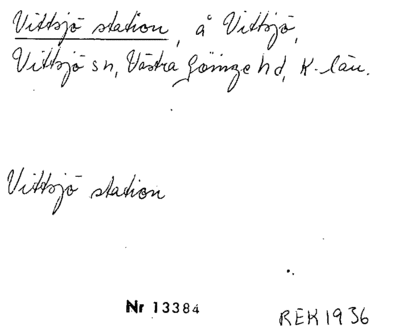 Vittsjö station, å Vittsjö,
Vittsjö sn, Västra Göinge hd, K. län.
Vittsjö station
Nr 13384
REK 1936